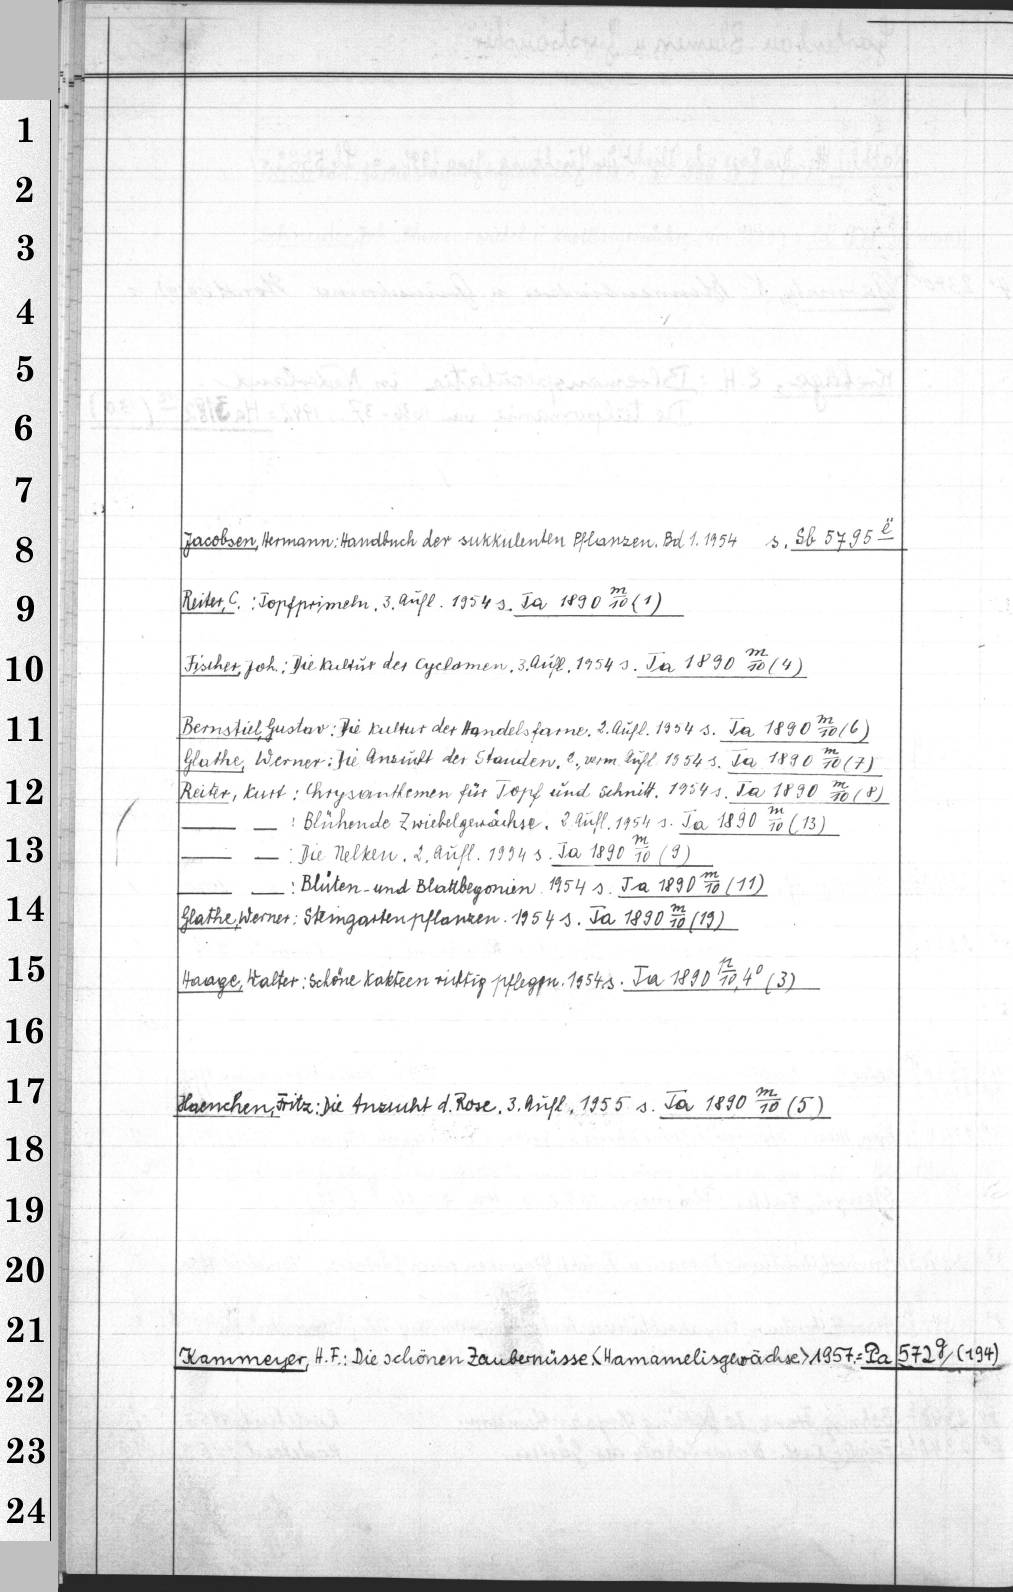 1
2
3
4
5
6
7
8
Jacobsen, Hermann: Handbuch der sukkulenten Pflanzen. Bd 1. 1954 s. Sb 5795 ë
9
Reiter, C.: Topfprimeln. 3. Aufl. 1954 s. Ta 1890 m/10 (1)
10
Fischer, Joh.: Die Kultur des Cyclamen. 3. Aufl. 1954 s. Ta 1890 m/10 (4)
11
Bernstiel, Gustav: Die Kultur der Handelsfarne. 2. Aufl. 1954 s. Ta 1890 m/10 (6)
Glathe, Werner: Die Anzucht der Stauden. 2., verm. Aufl. 1954 s. Ta 1890 m/10 (7)
12
Reiter, Kurt: Chrysanthemen für Topf und Schnitt. 1954 s. Ta 1890 m/10 (8)
— — : Blühende Zwiebelgewächse. 2. Aufl. 1954 s. Ta 1890 m/10 (13)
13
— — : Die Nelken. 2. Aufl. 1954 s. Ta 1890 m/10 (9)
— — : Blüten- und Blattbegonien. 1954 s. Ta 1890 m/10 (11)
14
Glathe, Werner: Steingartenpflanzen. 1954 s. Ta 1890 m/10 (19)
15
Haage, Walter: Schöne Kakteen richtig pflegen. 1954 s. Ta 1890 n/10, 4° (3)
16
17
Haenchen, Fritz: Die Anzucht d. Rose. 3. Aufl. 1955 s. Ta 1890 m/10 (5)
18
19
20
21
Kammeyer, H. F.: Die schönen Zaubernüsse <Hamamelisgewächse> 1957. = Pa 572 g/(194)
22
23
24